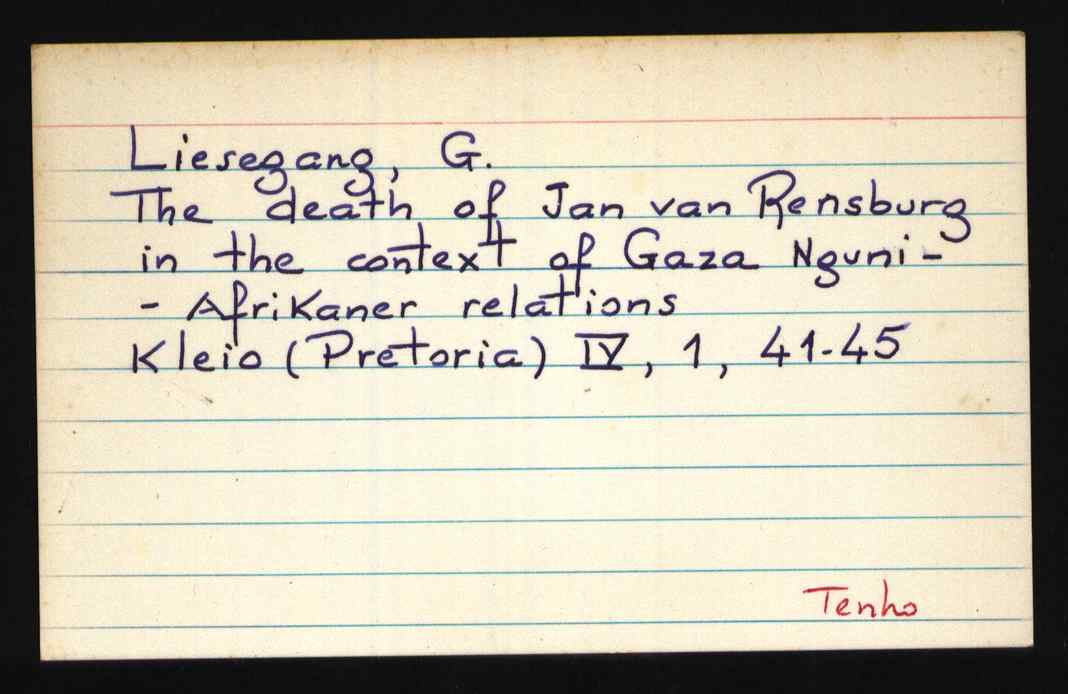 Liesegang, G.
The death of Jan van Rensburg
in the context of Gaza Nguni -
- Afrikaner relations
Kleio (Pretoria) IV, 1, 41-45
Tenho